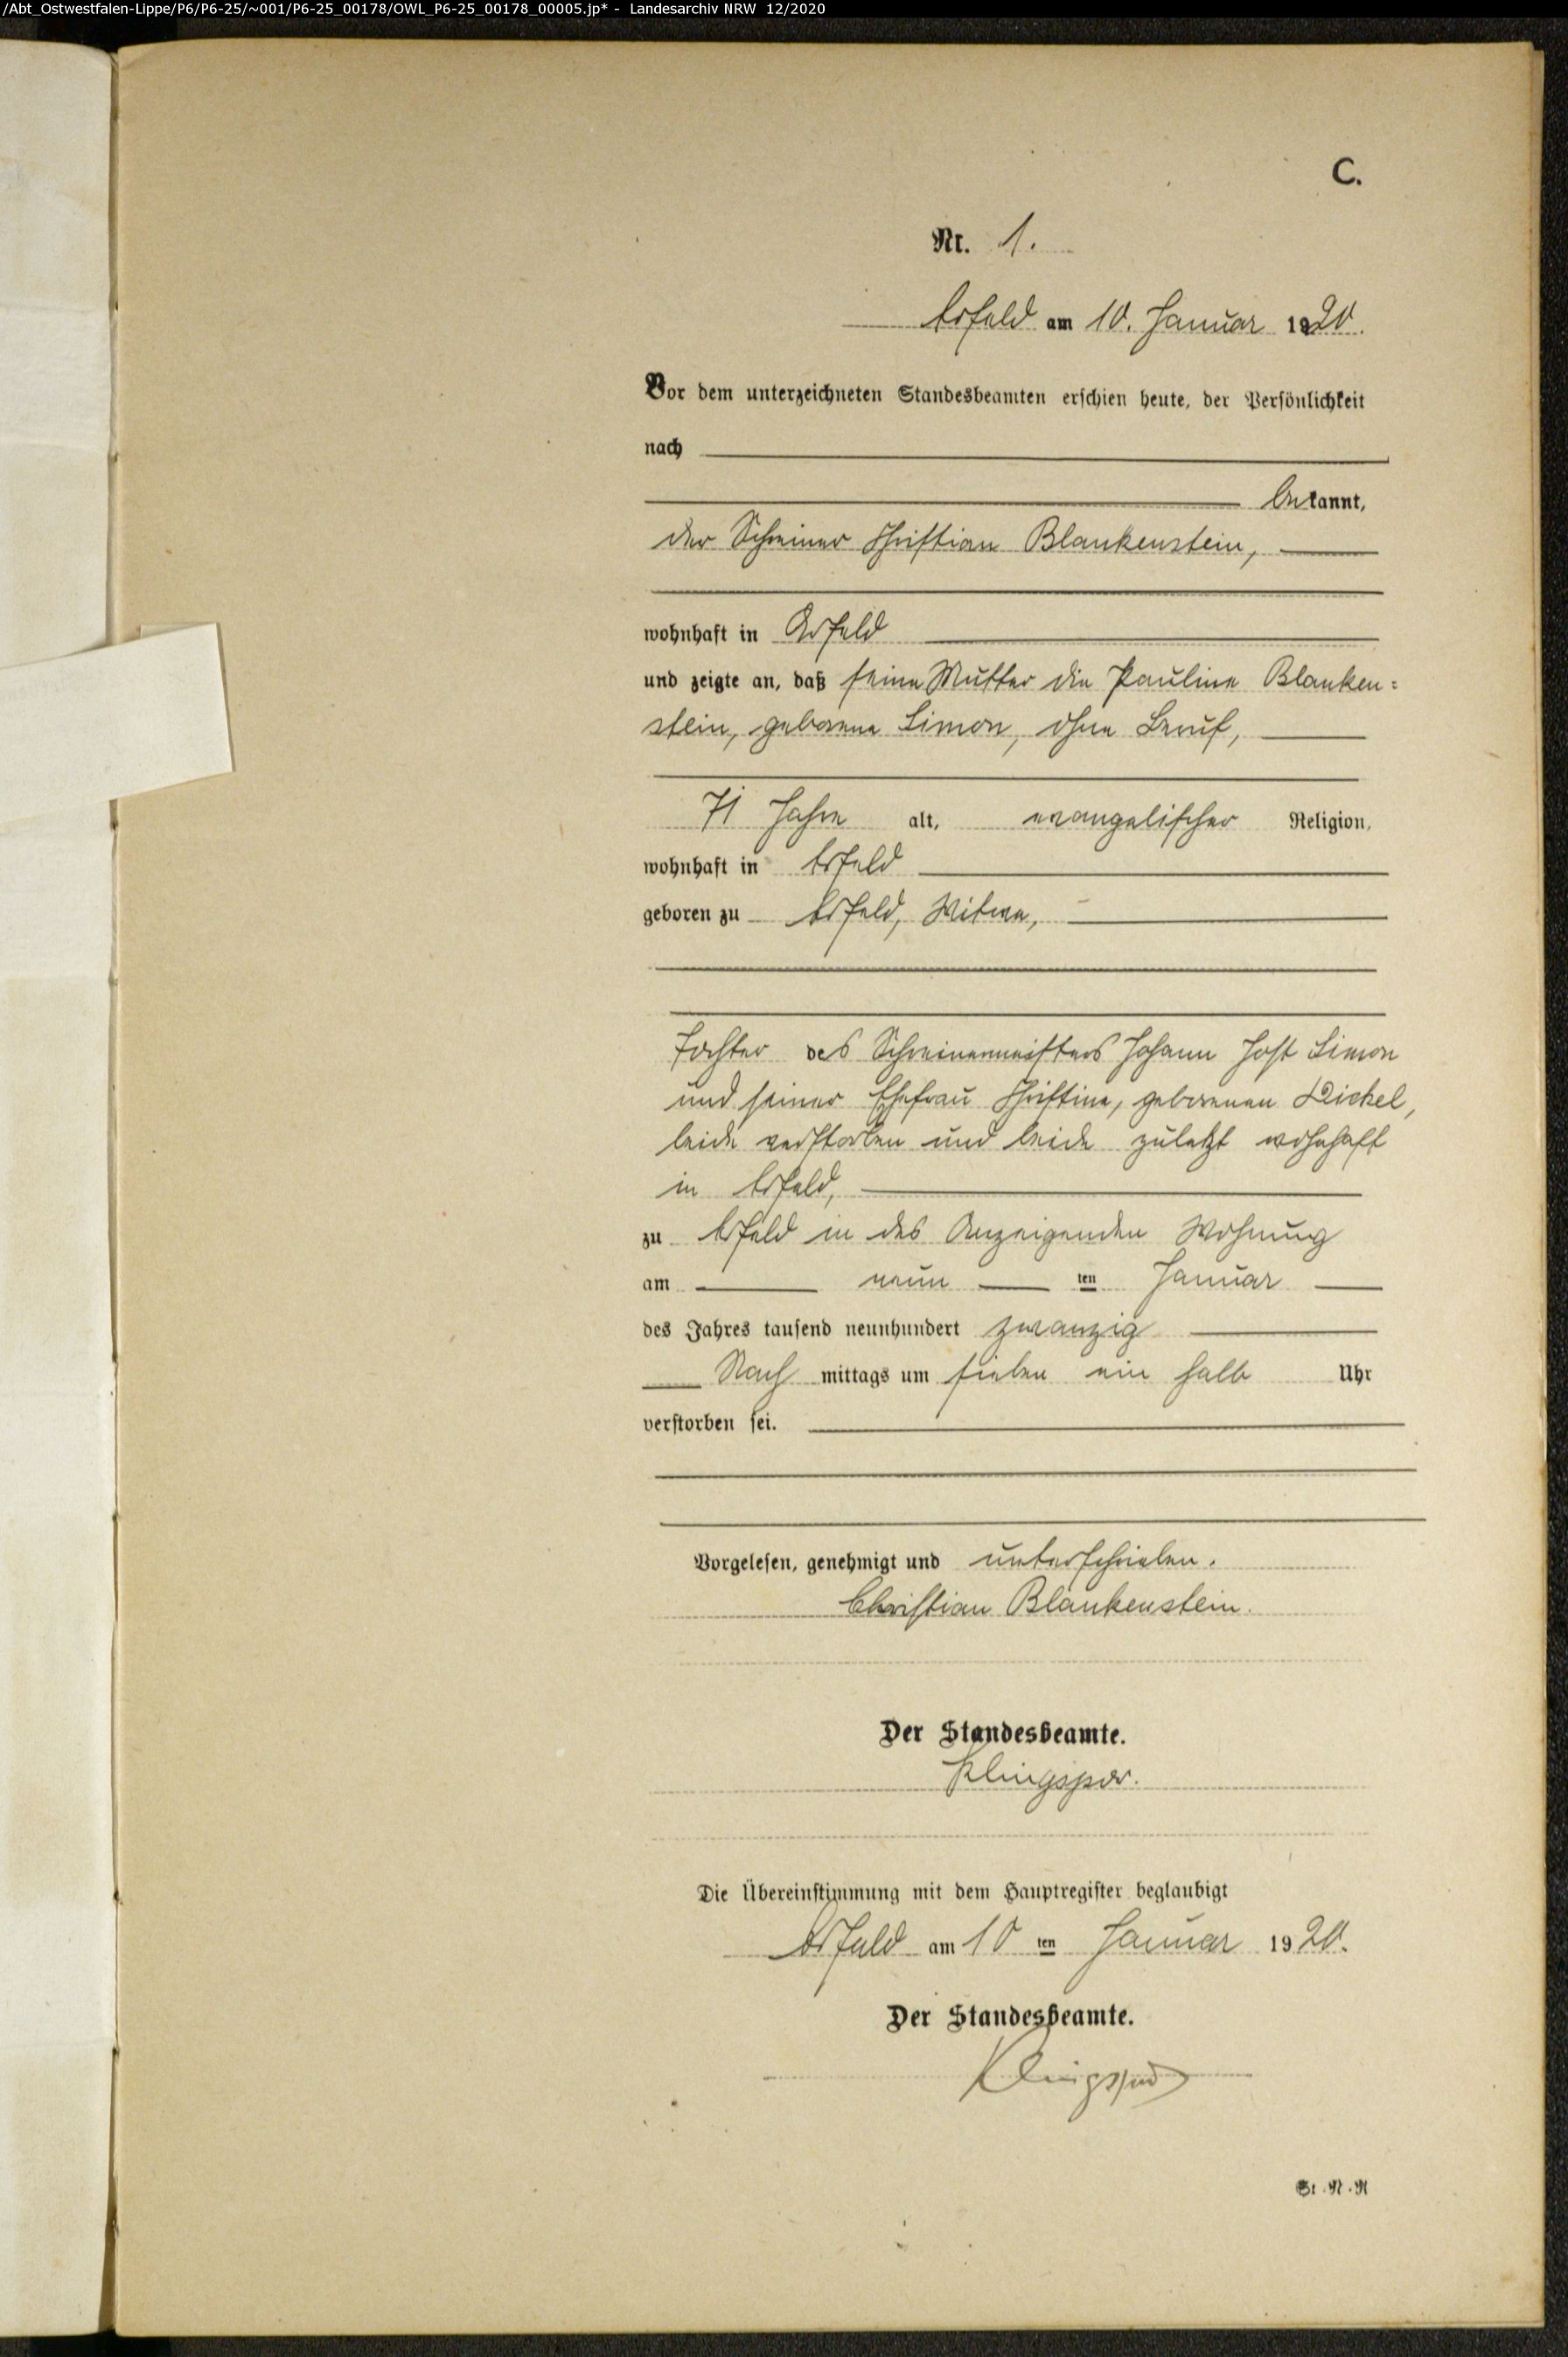 /Abt_Ostwestfalen-Lippe/P6/P6-25/~001/P6-25_00178/OWL_P6-25_00178_00005.jp* - Landesarchiv NRW 12/2020
C.
Nr. 1.
Arfeld am 10. Januar 1920.
Vor dem unterzeichneten Standesbeamten erschien heute, der Persönlichkeit
nach
bekannt,
der Schreiner Christian Blankenstein,
wohnhaft in Arfeld
und zeigte an, daß seine Mutter die Pauline Blanken-
stein, geborene Simon, ohne Beruf,
71 Jahre alt, evangelischer Religion,
wohnhaft in Arfeld
geboren zu Arfeld, Witwe,
Tochter des Schreinermeisters Johann Jost Simon
und seiner Ehefrau Christine, geborenen Dickel,
beide verstorben und beide zuletzt wohnhaft
in Arfeld,
zu Arfeld in des Anzeigenden Wohnung
am neun ten Januar
des Jahres tausend neunhundert zwanzig
Nach mittags um sieben ein halb Uhr
verstorben sei.
Vorgelesen, genehmigt und unterschrieben.
Christian Blankenstein.
Der Standesbeamte.
Klingspor.
Die Übereinstimmung mit dem Hauptregister beglaubigt
Arfeld am 10 ten Januar 1920.
Der Standesbeamte.
Klingspor